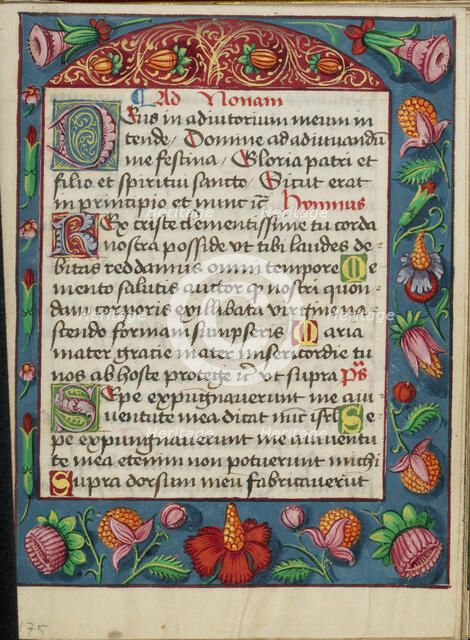 Ad Nonam
Deus in adiutorium meum in
tende/ Domine ad adiuuandū
me festina/ Gloria patri et
filio et spiritui sancto/ Sicut erat
in principio et nunc ic̄ Hymnus
Rex criste clementissime tu corda
nostra posside vt tibi laudes de
bitas reddamus omni tempore Me
mento salutis auctor qz nostri quon
dam corporis ex illibata virgine na
scendo formam sumpseris Maria
mater gratie mater misericordie tu
nos ab hoste protege vt supra Ps
Sepe expugnauerunt me a iu
uentute mea dicat nūc isrl Se
pe expungnauerunt me a iuuentu
te mea etenim non potuerunt michi
Supra dorsum meū fabricauerūt
175
Heritage